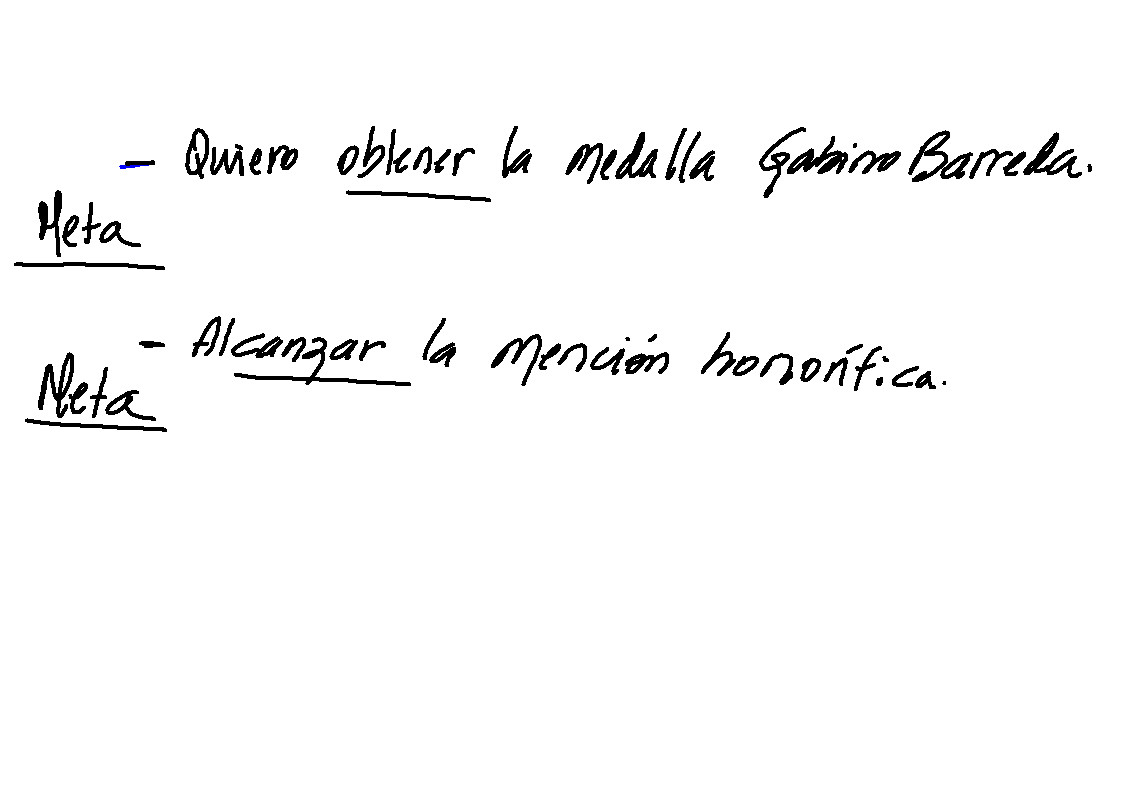 - Quiero obtener la medalla Gabino Barreda.
Meta
- Alcanzar la mención honorífica.
Meta